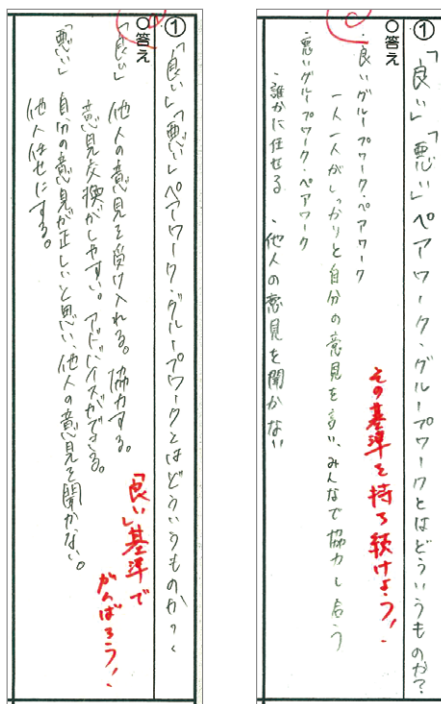 ①「良い」「悪い」ペアワーク・グループワークとはどういうものか?
○答え
・良いグループワーク・ペアワーク
一人一人がしっかりと自分の意見を言い、みんなで協力し合う
・悪いグループワーク・ペアワーク
・誰かに任せる ・他人の意見を聞かない
その基準を持ち続けよう!
①「良い」「悪い」ペアワーク・グループワークとはどういうものか?
○答え
「良い」 他人の意見を受け入れる。協力する。
意見交換がしやすい。アドバイスができる。
「悪い」 自分の意見が正しいと思い、他人の意見を聞かない。
他人任せにする。
「良い」基準で
がんばろう!